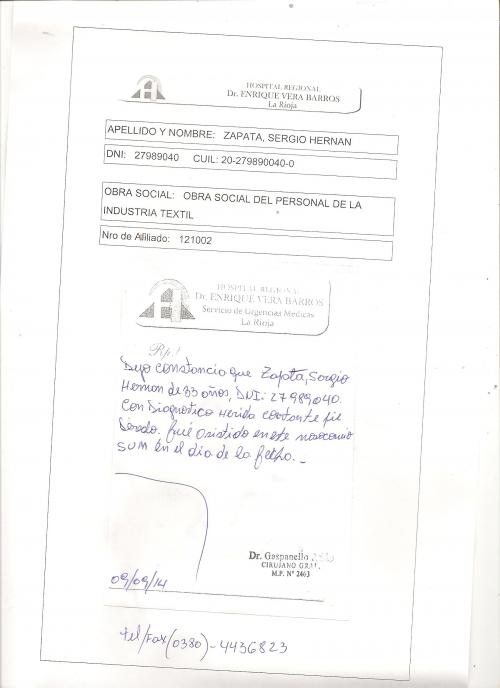 HOSPITAL REGIONAL
Dr. ENRIQUE VERA BARROS
La Rioja
APELLIDO Y NOMBRE: ZAPATA, SERGIO HERNAN
DNI: 27989040 CUIL: 20-279890040-0
OBRA SOCIAL: OBRA SOCIAL DEL PERSONAL DE LA
INDUSTRIA TEXTIL
Nro de Afiliado: 121002
HOSPITAL REGIONAL
Dr. ENRIQUE VERA BARROS
Servicio de Urgencias Medicas
La Rioja
Rp.!
Dejo constancia que Zapata, Sergio
Hernan de 33 años, DNI: 27989040.
Con Diagnostico Herida cortante pie
Derecho. fué asistido en este nosocomio
SUM en el dia de la fecha.
Dr. Gaspanello
CIRUJANO GRAL.
M.P. Nº 2463
09/09/14
tel/Fax (0380) - 4436823